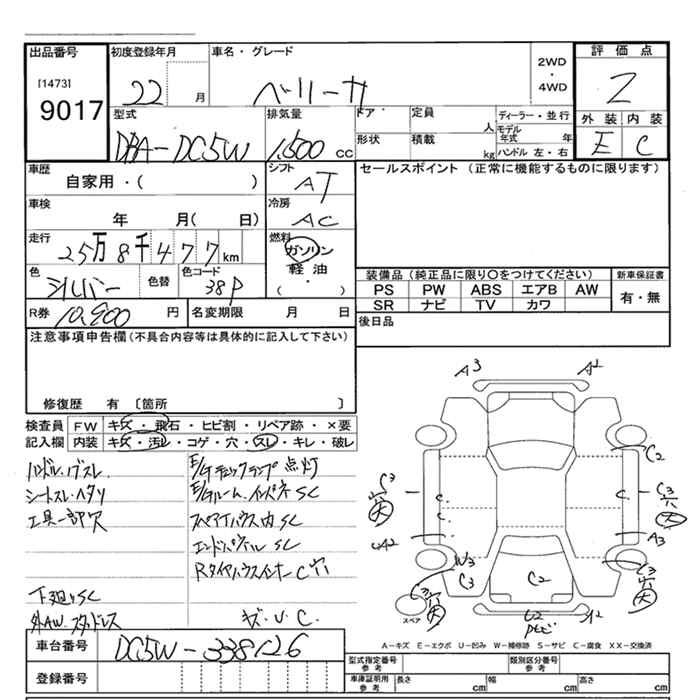 出品番号 初度登録年月 車名・グレード 2WD・4WD 評価点
[1473] 9017 22 月 ベリーサ 2
型式 排気量 ドア 定員 人 ディーラー・並行 外装 内装
DBA-DC5W 1,500 cc 形状 積載 kg モデル年式 年 ハンドル 左・右 E C
車歴 シフト セールスポイント (正常に機能するものに限ります)
自家用・( ) AT
車検 冷房
年 月( 日) AC
走行 燃料
25万8千477km ガソリン
色 色替 色コード 軽油 装備品 (純正品に限り○をつけてください) 新車保証書
シルバー 38P ( ・ ) PS PW ABS エアB AW 有・無
SR ナビ TV カワ
R券 10,900 円 名変期限 月 日 後日品
注意事項申告欄(不具合内容等は具体的に記入して下さい)
修復歴 有 〔箇所 〕
検査員 FW キズ・飛石・ヒビ割・リペア跡・×要
記入欄 内装 キズ・汚レ・コゲ・穴・スレ・キレ・破レ
ハンドル.ノブスレ. E/gチェックランプ点灯
シートスレ・ヘタリ E/gルーム.インパネSC
工具一部欠 スペアタイハウス内SC
エンドパネルSC
RタイヤハウスインナーC穴
下廻りSC
外AW.スタッドレス キズ.U.C.
車台番号 DC5W-338126
登録番号
A3 A2
C2
C3 穴 大
C.
C.
C.
C3 穴 大
A3
W3
C3
C3 穴 大
C2
C3 穴 大
スペア
U2
A2
A-キズ E-エクボ U-凹み W-補修跡 S-サビ C-腐食 XX-交換済
型式指定番号 参考 類別区分番号 参考
車庫証明用 参考 長さ cm 幅 cm 高さ cm